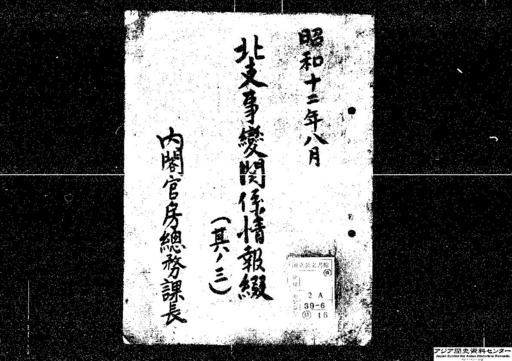 昭和十二年八月
北支事變関係情報綴
(其ノ三)
内閣官房總務課長
国立公文書館
2 A
39-6
16
アジア歴史資料センター
Japan Center for Asian Historical Records